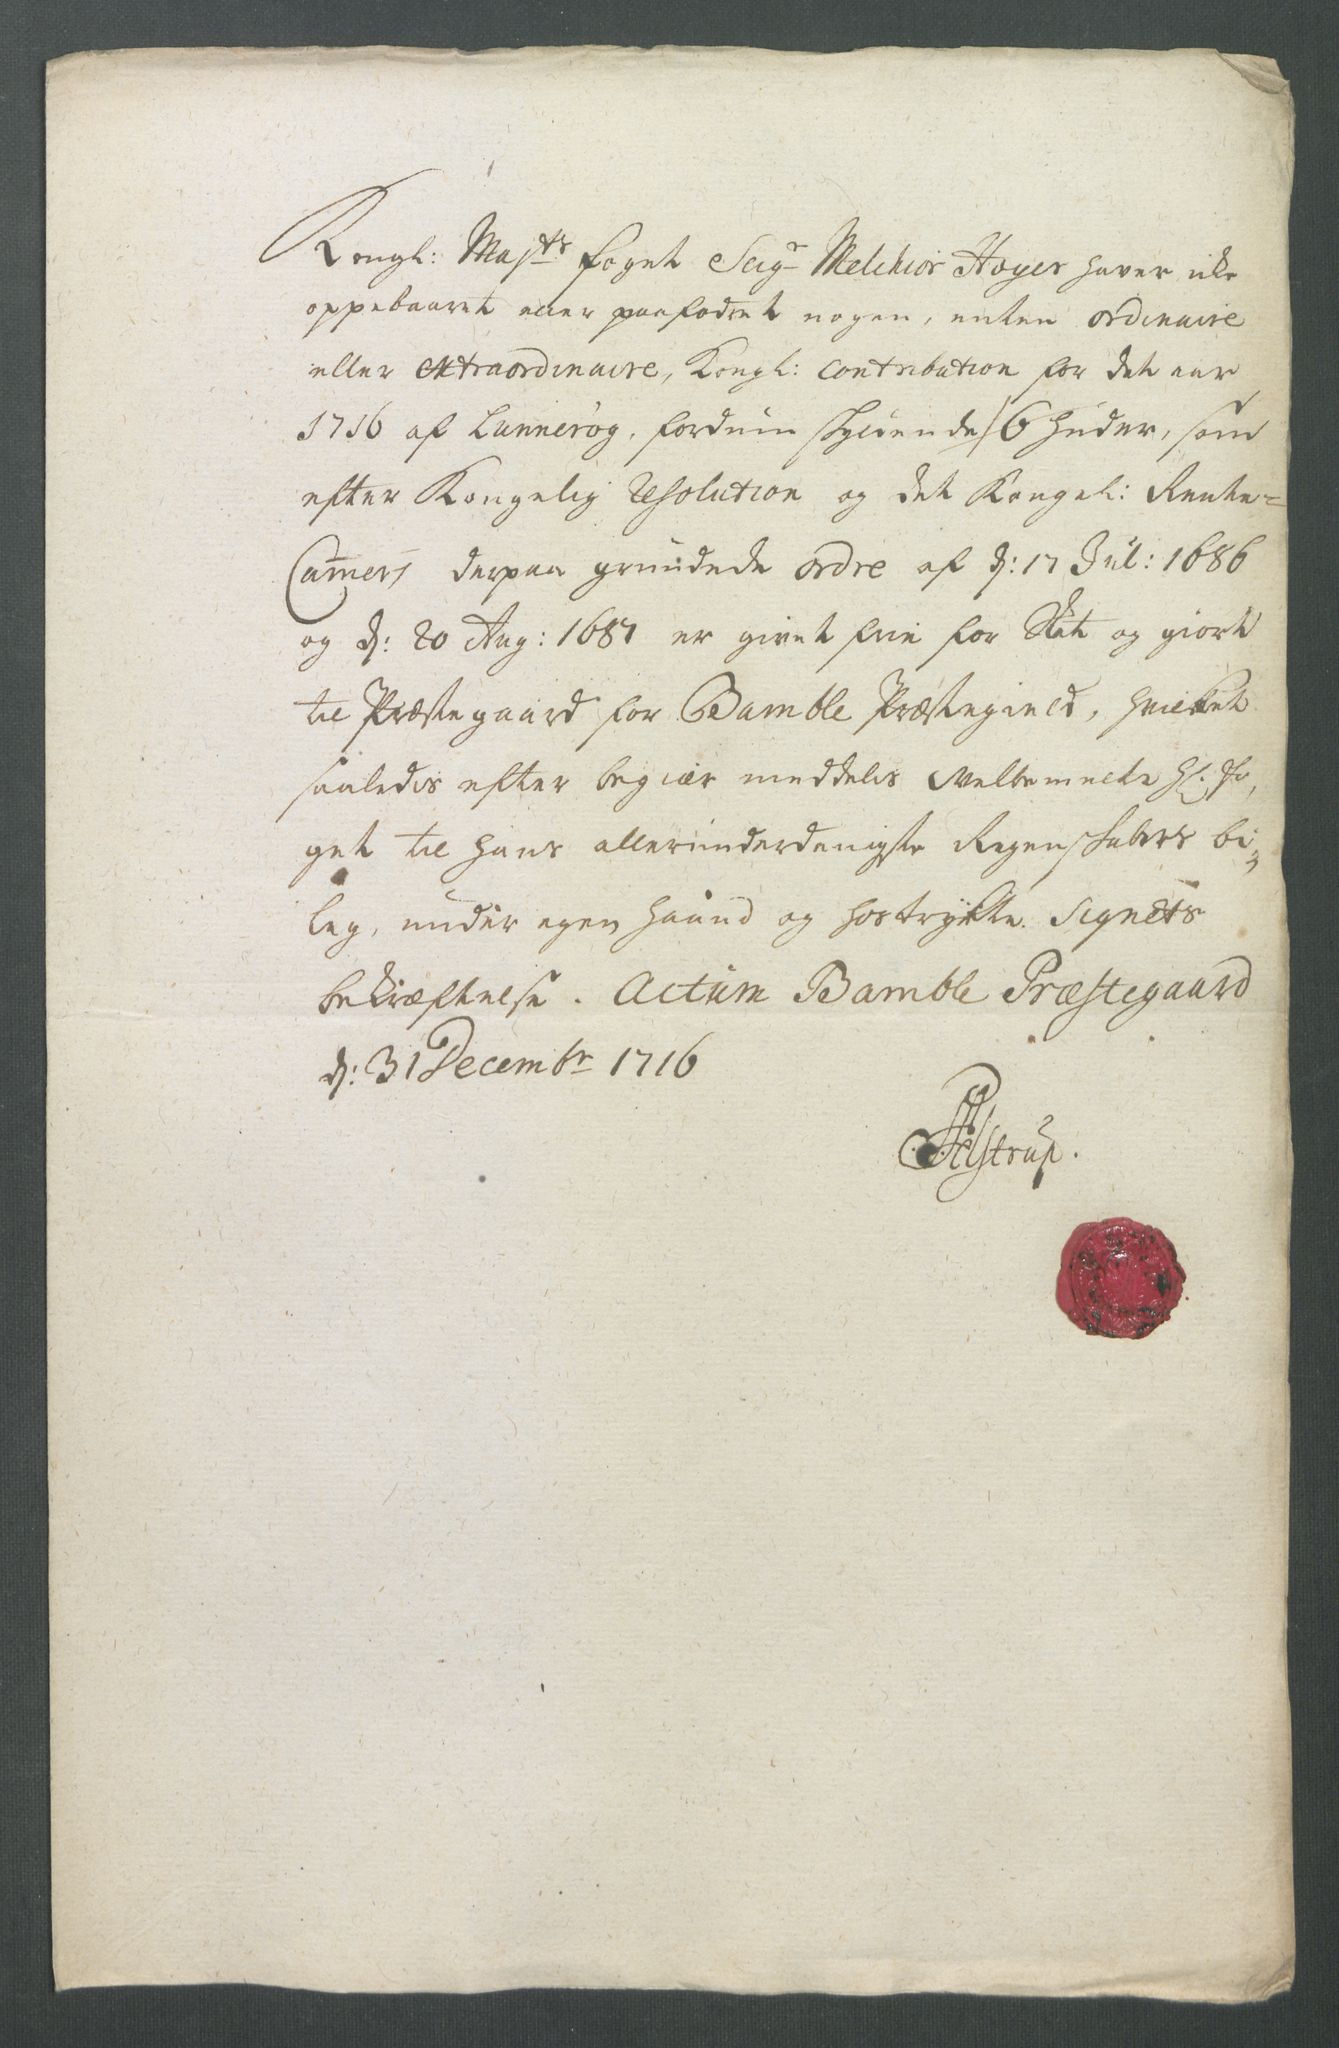 Kongl: Maj:ts foget Seigr Melchior Høyer haver icke
oppebaaret eller paafodret nogen, enten ordinaire
eller extraordinaire, Kongl: contribution for det aar
1716 af Lunnerøg, fordum skyldende 6 huder, som
efter Kongelig resolution og det Kongel: Rente-
Camers derpaa grundede ordre af d: 17 Jul: 1686
og d: 20 Aug: 1687 er givet frie for Skat og giort
til Præstegaard for Bamble Præstegield, hvilket
saaledis efter begiær meddelis velbemelte Hr. Fo,
get til hans allerunderdanigste Regenskabers bi-
leg, under egen haand og hostrykte Signets
bekræftelse. Actum Bamble Præstegaard
d: 31 Decembr 1716
Pelstrup.